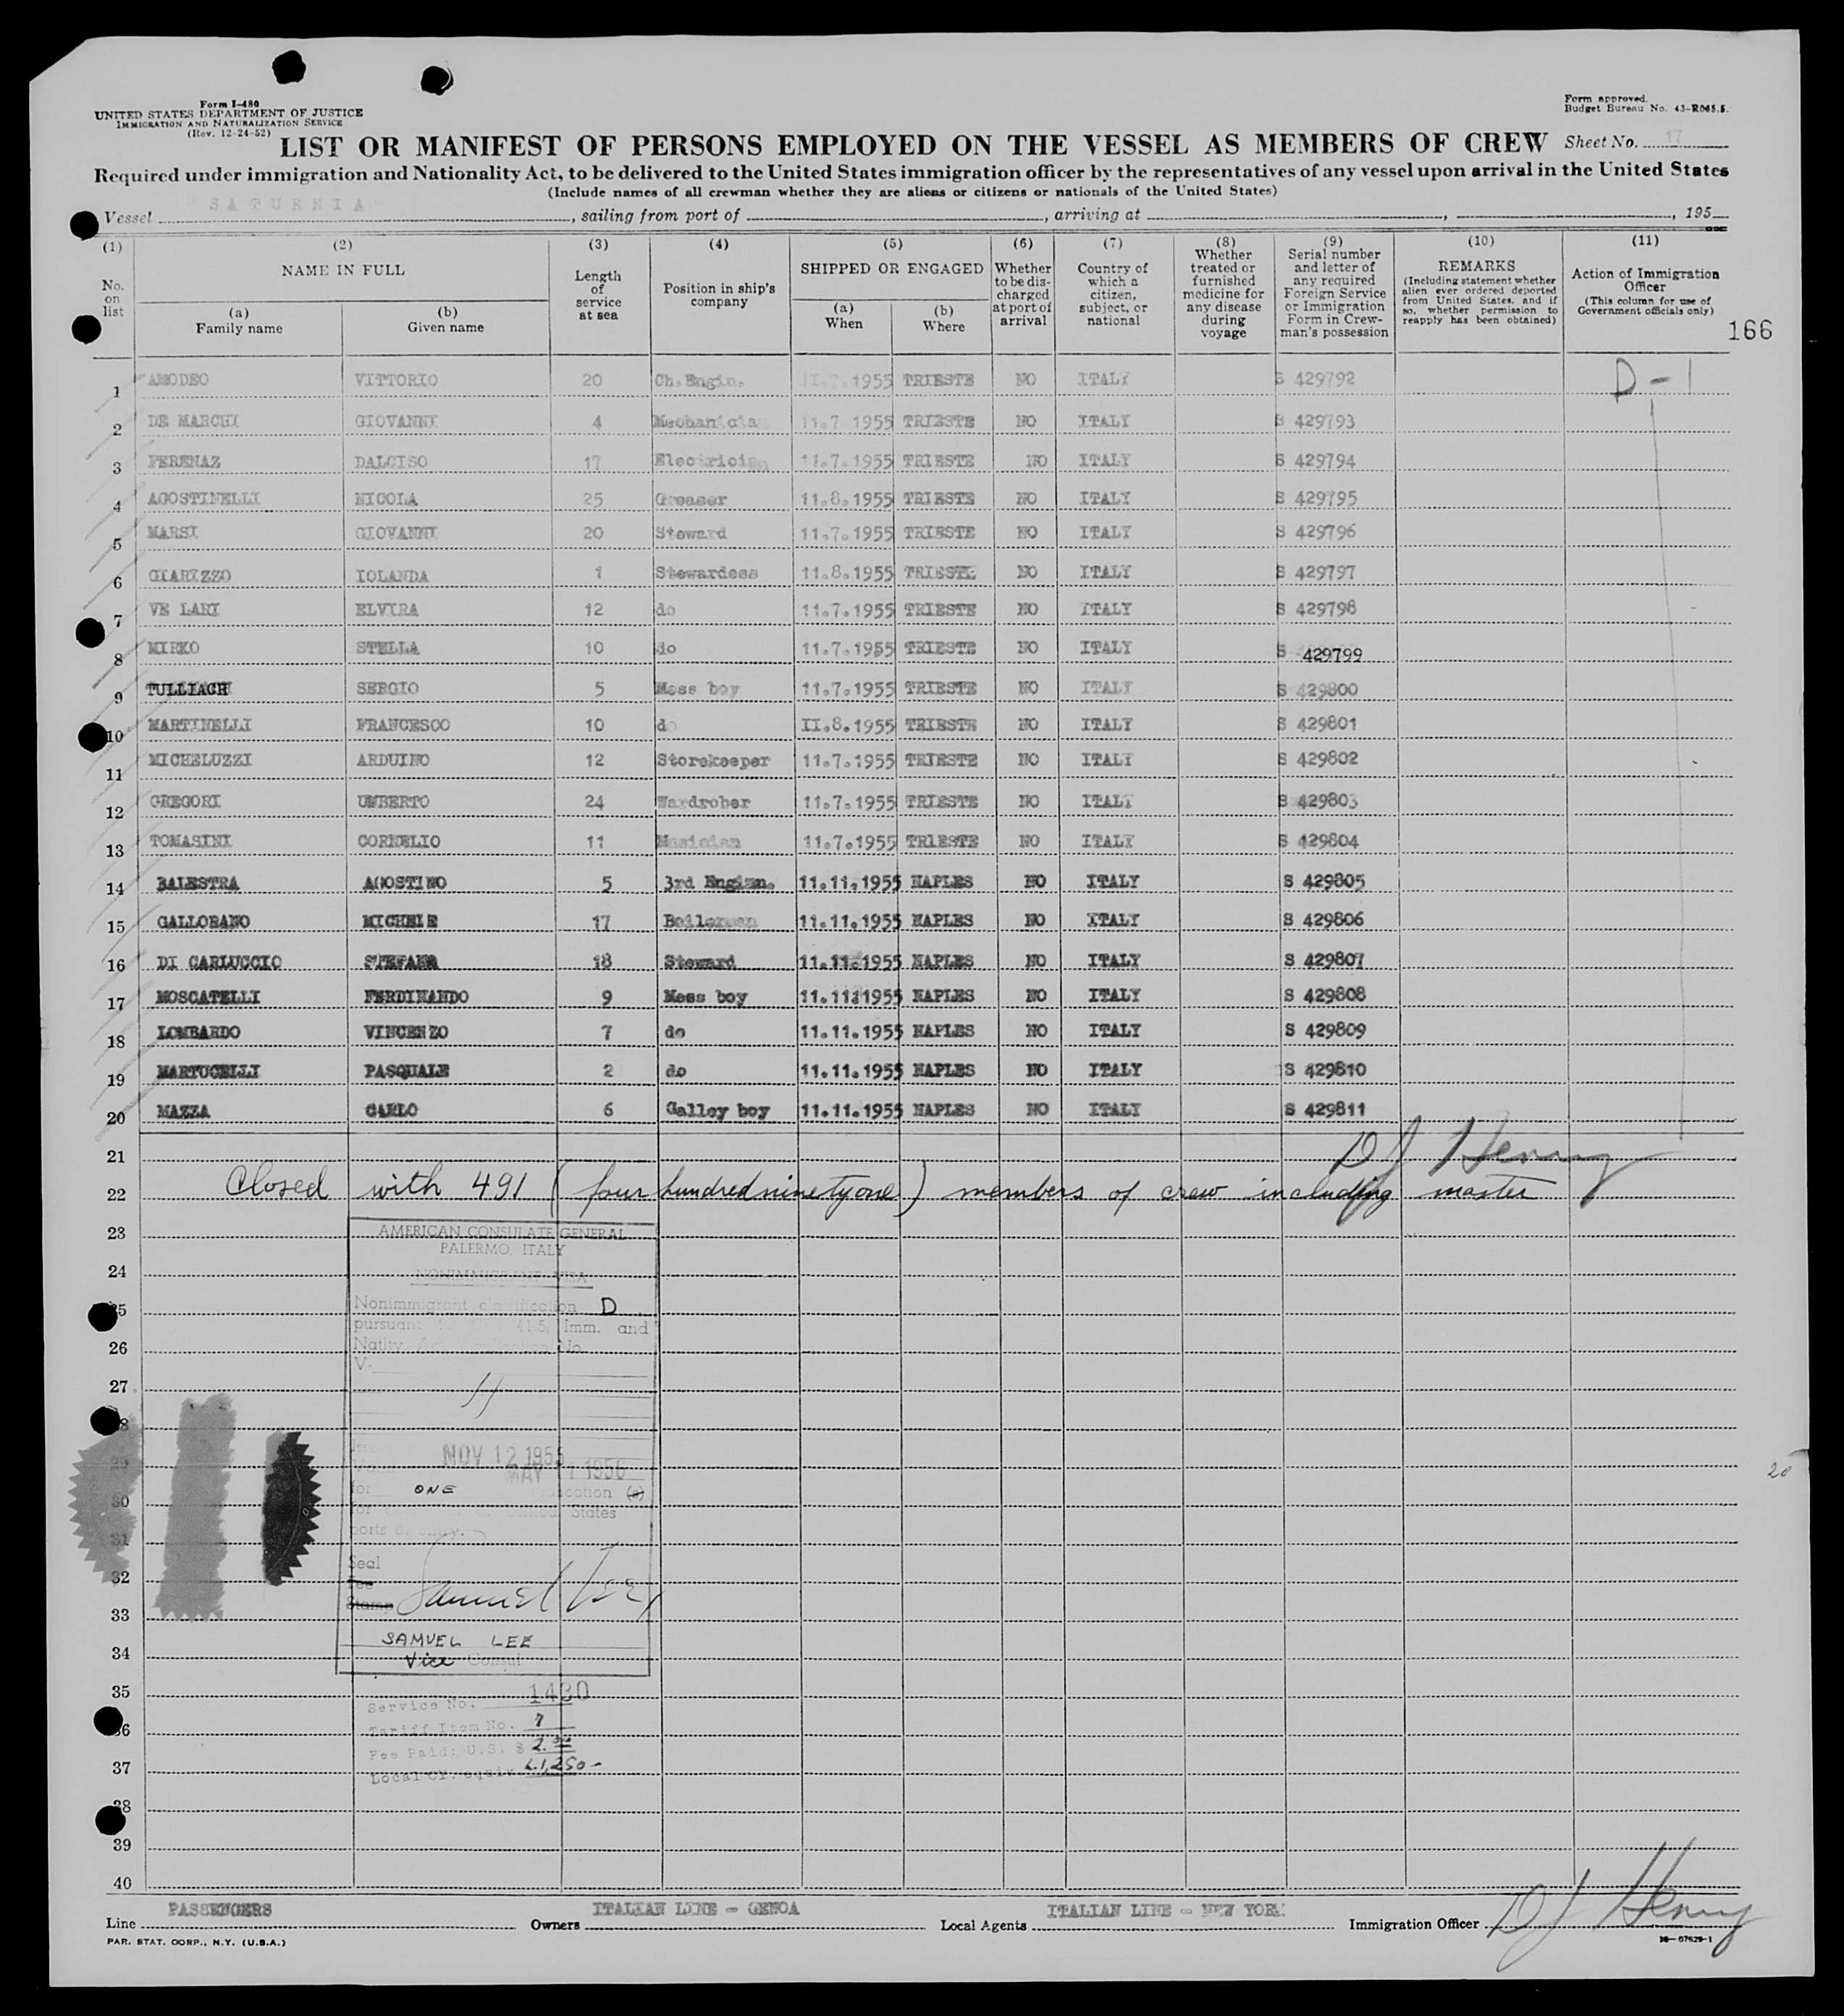 Form I-480
UNITED STATES DEPARTMENT OF JUSTICE
IMMIGRATION AND NATURALIZATION SERVICE
(Rev. 12-24-52)
Form approved.
Budget Bureau No. 43-R065.5.
LIST OR MANIFEST OF PERSONS EMPLOYED ON THE VESSEL AS MEMBERS OF CREW
Sheet No. 17
Required under immigration and Nationality Act, to be delivered to the United States immigration officer by the representatives of any vessel upon arrival in the United States
(Include names of all crewman whether they are aliens or citizens or nationals of the United States)
Vessel SATURNIA, sailing from port of, arriving at, , 195
(1) (2) (3) (4) (5) (6) (7) (8) (9) (10) (11)
No. on list
NAME IN FULL
(a) Family name
(b) Given name
Length of service at sea
Position in ship's company
SHIPPED OR ENGAGED
(a) When
(b) Where
Whether to be discharged at port of arrival
Country of which a citizen, subject, or national
Whether treated or furnished medicine for any disease during voyage
Serial number and letter of any required Foreign Service or Immigration Form in Crewman's possession
REMARKS
(Including statement whether alien ever ordered deported from United States, and if so, whether permission to reapply has been obtained)
Action of Immigration Officer
(This column for use of Government officials only)
166
1 AMODEO VITTORIO 20 Ch.Engin. II.7.1955 TRIESTE NO ITALY S 429792 D-1
2 DE MARCHI GIOVANNI 4 Mechanician 11.7.1955 TRIESTE NO ITALY S 429793
3 FERENAZ DALCISO 17 Electrician 11.7.1955 TRIESTE NO ITALY S 429794
4 AGOSTINELLI NICOLA 25 Greaser 11.8.1955 TRIESTE NO ITALY S 429795
5 MARSI GIOVANNI 20 Steward 11.7.1955 TRIESTE NO ITALY S 429796
6 GIARIZZO IOLANDA 1 Stewardess 11.8.1955 TRIESTE NO ITALY S 429797
7 VE LARI ELVIRA 12 do 11.7.1955 TRIESTE NO ITALY S 429798
8 MIRKO STELLA 10 do 11.7.1955 TRIESTE NO ITALY S 429799
9 TULLIACH SERGIO 5 Mess boy 11.7.1955 TRIESTE NO ITALY S 429800
10 MARTINELLI FRANCESCO 10 do II.8.1955 TRIESTE NO ITALY S 429801
11 MICHELUZZI ARDUINO 12 Storekeeper 11.7.1955 TRIESTE NO ITALY S 429802
12 GREGORI UMBERTO 24 Wardrober 11.7.1955 TRIESTE NO ITALY S 429803
13 TOMASINI CORNELIO 11 Musician 11.7.1955 TRIESTE NO ITALY S 429804
14 BALESTRA AGOSTINO 5 3rd Engin. 11.11.1955 NAPLES NO ITALY S 429805
15 GALLOBANO MICHELE 17 Boilerman 11.11.1955 NAPLES NO ITALY S 429806
16 DI CARLUCCIO STEFANA 18 Steward 11.11.1955 NAPLES NO ITALY S 429807
17 MOSCATELLI FERDINANDO 9 Mess boy 11.11.1955 NAPLES NO ITALY S 429808
18 LOMBARDO VINCENZO 7 do 11.11.1955 NAPLES NO ITALY S 429809
19 MARTUCELLI PASQUALE 2 do 11.11.1955 NAPLES NO ITALY S 429810
20 MAZZA CARLO 6 Galley boy 11.11.1955 NAPLES NO ITALY S 429811
21 DJ Henry
22 Closed with 491 (four hundred ninety one) members of crew including master
23
24
25
26
27
28
29
30
31
32
33
34
35
36
37
38
39
40
AMERICAN CONSULATE GENERAL
PALERMO, ITALY
NONIMMIGRANT VISA
Nonimmigrant classification D
pursuant 41.5, Imm. and
Natlty.
V-
NOV 12 1955
MAY 11 1956
for ONE application (s)
for United States
ports of entry.
Seal
Fee
Stamp
Samuel Lee
SAMUEL LEE
Vice Consul
Service No. 1430
Tariff Item No. 7
Fee Paid: U.S. $ 2.00
Local CY. equiv. L.1,250-
20
Line PASSENGERS Owners ITALIAN LINE - GENOA Local Agents ITALIAN LINE - NEW YORK Immigration Officer DJ Henry
PAR. STAT. CORP., N.Y. (U.S.A.)
16-67629-1